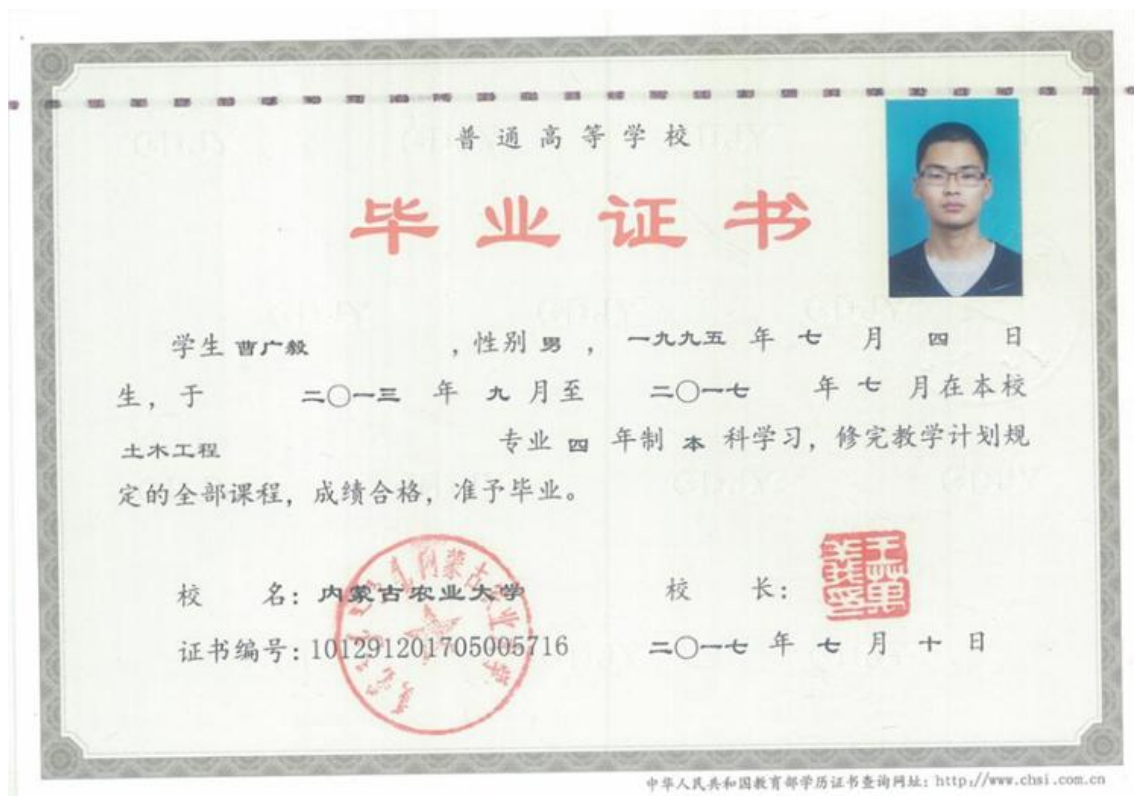 普通高等学校
毕业证书
学生 曹广毅 ，性别 男 ， 一九九五 年 七 月 四 日
生，于 二〇一三 年 九 月至 二〇一七 年 七 月在本校
土木工程 专业 四 年制 本 科学习，修完教学计划规
定的全部课程，成绩合格，准予毕业。
校 名：内蒙古农业大学 校 长：
证书编号：101291201705005716 二〇一七 年 七 月 十 日
内蒙古农业大学
中华人民共和国教育部学历证书查询网址：http://www.chsi.com.cn